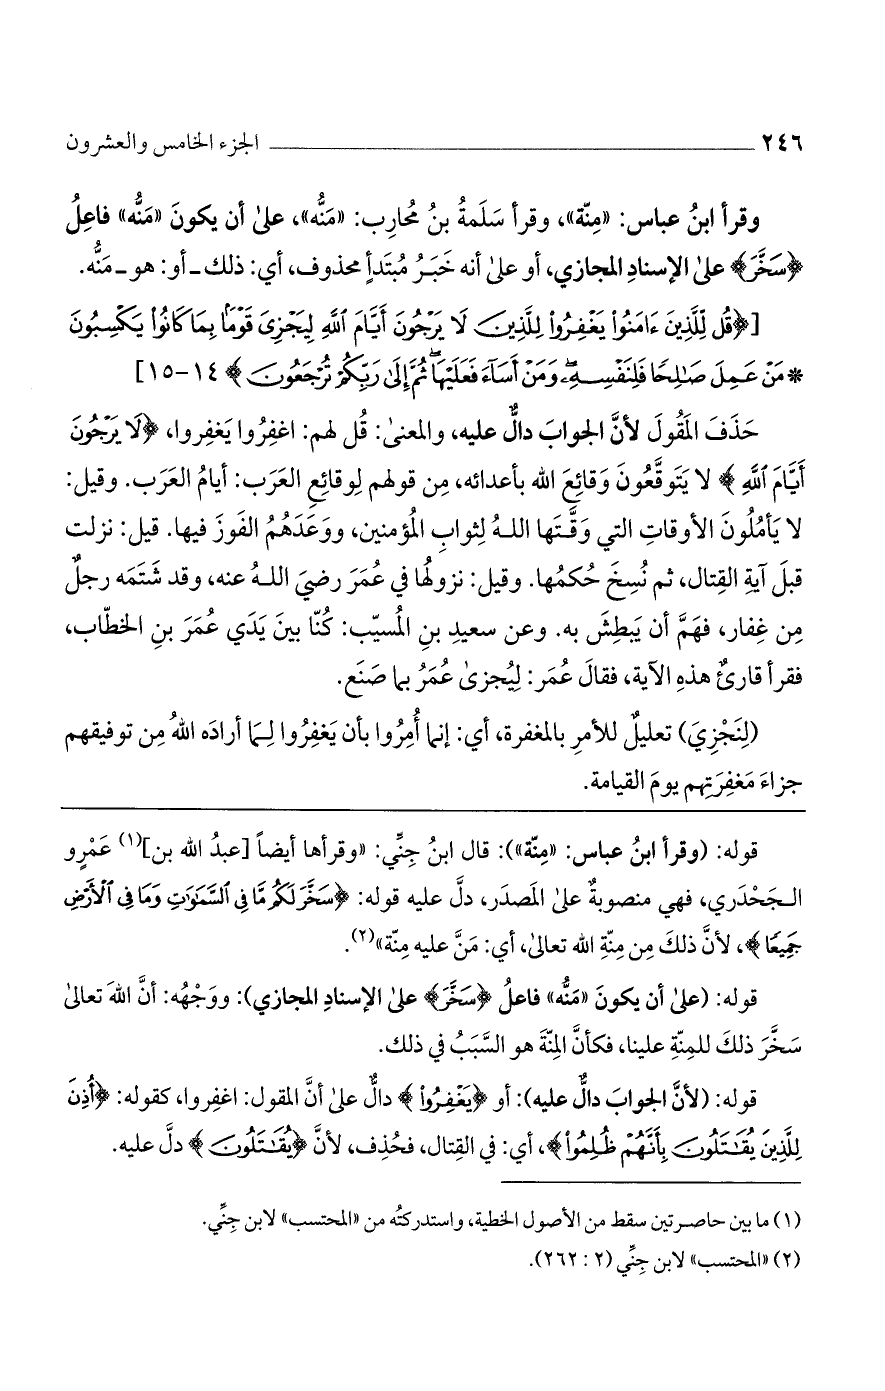 ٢٤٦ ــــــــــــــــــــــــــــــــ الجزء الخامس والعشرون
وقرأ ابنُ عباس: «مِنّة»، وقرأ سَلَمةُ بنُ مُحارِب: «مَنُّه»، علىٰ أن يكونَ «مَنُّه» فاعِلُ
﴿سَخَّرَ﴾ علىٰ الإسنادِ المجازي، أو علىٰ أنه خَبَرُ مُبتَدأٍ محذوف، أي: ذلك ـ أو: هو ـ مَنُّه.
[﴿قُل لِّلَّذِينَ ءَامَنُواْ يَغْفِرُواْ لِلَّذِينَ لَا يَرْجُونَ أَيَّامَ ٱللَّهِ لِيَجْزِىَ قَوْمًۢا بِمَا كَانُواْ يَكْسِبُونَ
* مَنْ عَمِلَ صَٰلِحًا فَلِنَفْسِهِۦ ۖ وَمَنْ أَسَآءَ فَعَلَيْهَا ۖ ثُمَّ إِلَىٰ رَبِّكُمْ تُرْجَعُونَ﴾ ١٤-١٥]
حَذَفَ المَقُولَ لأنَّ الجوابَ دالٌّ عليه، والمعنىٰ: قُل لهم: اغفِرُوا يَغفِروا، ﴿لَا يَرْجُونَ
أَيَّامَ ٱللَّهِ﴾ لا يَتَوقَّعُونَ وَقائِعَ الله بأعدائه، مِن قولهم لِوقائعِ العَرَب: أيامُ العَرَب. وقيل:
لا يَأمُلُونَ الأوقاتِ التي وَقَّتَها اللهُ لِثوابِ المُؤمنين، ووَعَدَهُمُ الفَوزَ فيها. قيل: نزلت
قبلَ آيةِ القِتال، ثم نُسِخَ حُكمُها. وقيل: نزولُها في عُمَرَ رضيَ اللهُ عنه، وقد شَتَمَه رجلٌ
مِن غِفار، فهَمَّ أن يَبطِشَ به. وعن سعيدِ بنِ المُسيّب: كُنّا بينَ يَدَي عُمَرَ بنِ الخطّاب،
فقرأ قارئٌ هذهِ الآية، فقالَ عُمَر: لِيُجزىٰ عُمَرُ بما صَنَع.
(لِنَجْزِيَ) تعليلٌ للأمرِ بالمغفرة، أي: إنما أُمِرُوا بأن يَغفِرُوا لِمَا أرادَه اللهُ مِن توفيقهم
جزاءَ مَغفِرَتِهم يومَ القيامة.
قوله: (وقرأ ابنُ عباس: «مِنّة»): قال ابنُ جِنِّي: «وقرأها أيضاً [عبدُ الله بن](١) عَمْرٍو
الجَحْدَري، فهي منصوبةٌ علىٰ المَصدَر، دلَّ عليه قوله: ﴿سَخَّرَ لَكُم مَّا فِى ٱلسَّمَٰوَٰتِ وَمَا فِى ٱلْأَرْضِ
جَمِيعًا﴾، لأنَّ ذلكَ مِن مِنّةِ الله تعالىٰ، أي: مَنَّ عليه مِنّة»(٢).
قوله: (علىٰ أن يكونَ «مَنُّه» فاعلُ ﴿سَخَّرَ﴾ علىٰ الإسنادِ المجازي): ووَجْهُه: أنَّ اللهَ تعالىٰ
سَخَّرَ ذلكَ للمِنّةِ علينا، فكأنَّ المِنّةَ هو السَّبَبُ في ذلك.
قوله: (لأنَّ الجوابَ دالٌّ عليه): أو ﴿يَغْفِرُواْ﴾ دالٌّ علىٰ أنَّ المقول: اغفِروا، كقوله: ﴿أُذِنَ
لِلَّذِينَ يُقَٰتَلُونَ بِأَنَّهُمْ ظُلِمُواْ﴾، أي: في القِتال، فحُذِف، لأنَّ ﴿يُقَٰتَلُونَ﴾ دلَّ عليه.
(١) ما بين حاصرتين سقط من الأصول الخطية، واستدركتُه من «المحتسب» لابن جِنِّي.
(٢) «المحتسب» لابن جِنِّي (٢: ٢٦٢).